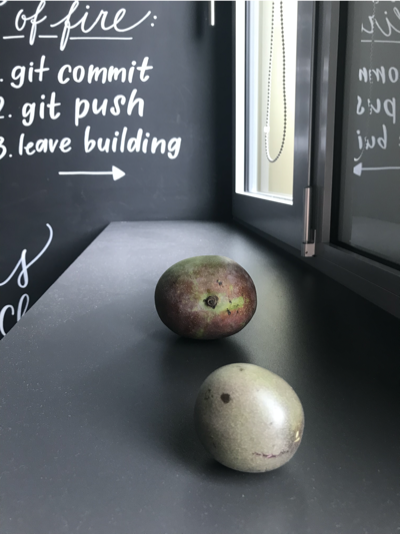 of fire:
1. git commit
2. git push
3. leave building